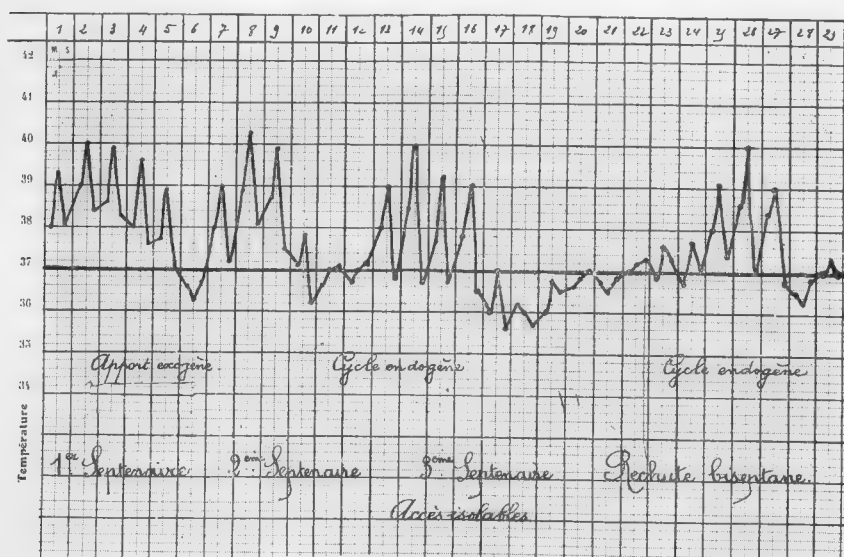 1 2 3 4 5 6 7 8 9 10 11 12 13 14 15 16 17 18 19 20 21 22 23 24 25 26 27 28 29
M. S.
42
41
40
39
38
37
36
35
34
Température
Apport exogène Cycle endogène Cycle endogène
1er Septenaire 2em Septenaire 3eme Septenaire Rechute biseptane.
Accès isolables